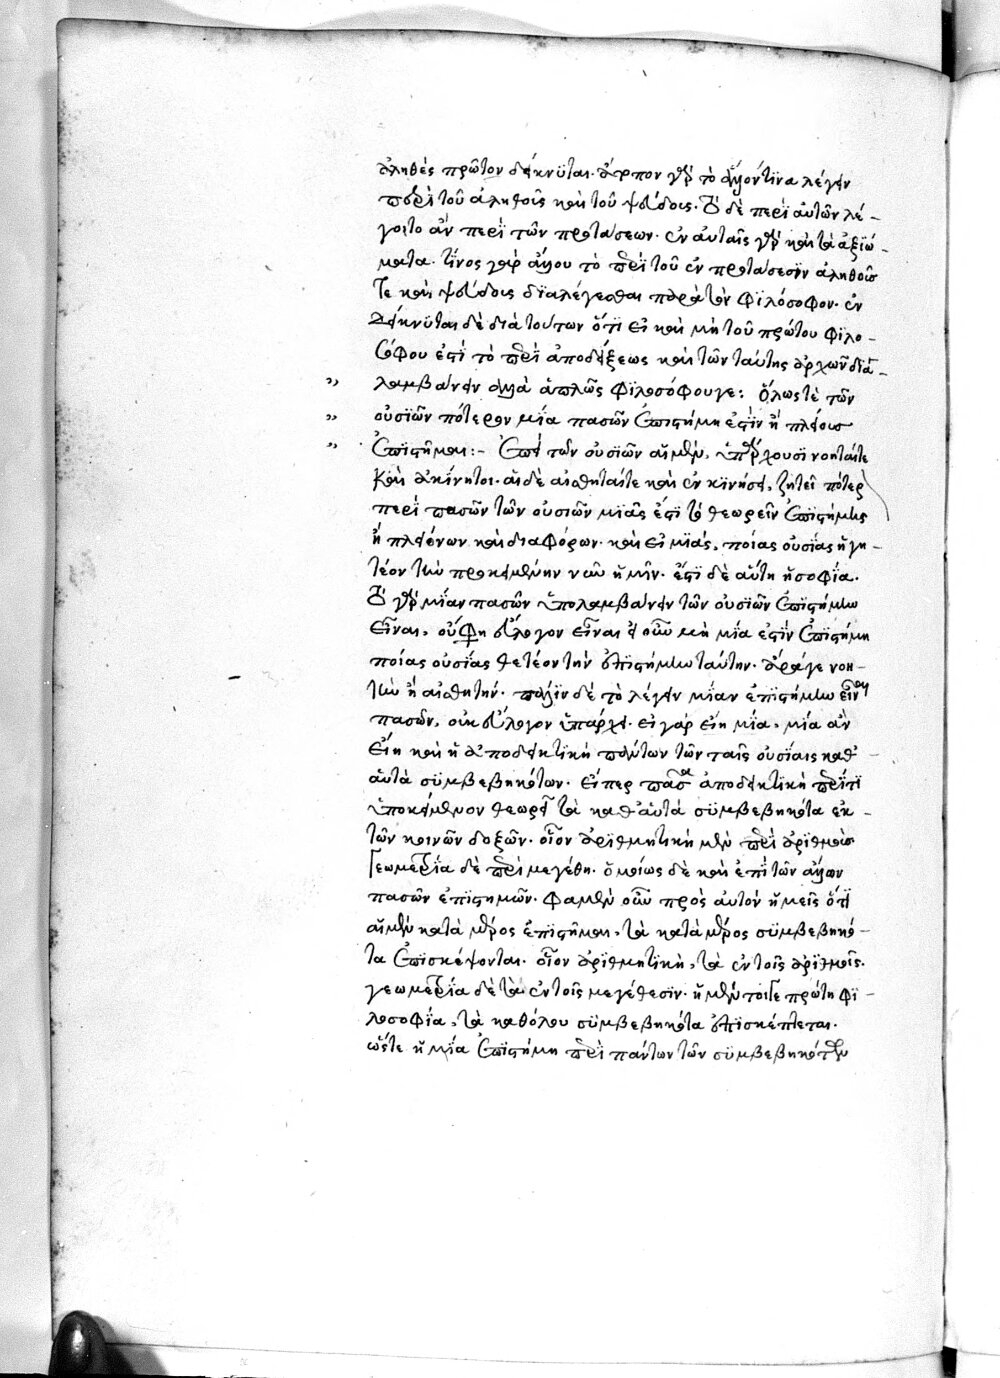 ἀληθὲς πρῶτον δείκνυται. ἄτοπον γὰρ τὸ ἄλλον τϊνα λέγειν
περὶ τοῦ ἀληθοῦς καὶ τοῦ ψεύδους. ὁ δὲ περὶ αὐτῶν λέ-
γοιτο ἂν περὶ τῶν προτάσεων. ἐν αὐταῖς γὰρ καὶ τὰ ἀξϊώ-
ματα. τίνος γὰρ ἄλλου τὸ περὶ τοῦ ἐν προτάσεσϊν ἀληθοῦς
τε καὶ ψεύδους δϊαλέγεσθαι παρὰ τὸν φϊλόσοφον. ἐν
δείκνυται δὲ διὰ τούτων ὅτϊ εἰ καὶ μὴ τοῦ πρώτου φϊλο-
σόφου ἐστὶ τὸ περὶ ἀποδείξεως καὶ τῶν ταύτης ἀρχῶν δϊα-
" λαμβάνειν ἀλλὰ ἁπλῶς φϊλοσόφου γε: ὅλως τὲ τῶν
" οὐσϊῶν πότερον μία πασῶν ἐπιστήμη ἐστὶν ἢ πλείους
" ἐπϊστῆμαι:- ἐπεὶ τῶν οὐσϊῶν αἱ μὲν, ὑπάρχουσϊ νοηταίτε
καὶ ἀκίνητοι. αἱ δὲ αἰσθηταίτε καὶ ἐν κϊνήσει, ζητεῖ πότερον
περὶ πασῶν τῶν οὐσϊῶν μϊᾶς ἐστϊ τὸ θεωρεῖν ἐπϊστήμης
ἢ πλειόνων καὶ διαφόρων. καὶ εἰ μϊᾶς, ποίας οὐσίας ἡγη-
τέον τὴν προκειμένην νῦν ἡμῖν. ἐστϊ δὲ αὕτη ἡ σοφΐα.
ὁ γὰρ μίαν πασῶν ὑπολαμβάνειν τῶν οὐσϊῶν ἐπϊστήμην
εἶναι, οὔ φησι εὔλογον εἶναι εἰ οὖν μὴ μία ἐστὶν ἐπϊστήμη
ποίας οὐσίας θετέον τὴν ἐπϊστήμην ταύτην. ἆράγε νοη-
τὴν ἢ αἰσθητήν. πάλϊν δὲ τὸ λέγειν μίαν ἐπϊστήμην εἶναι
πασῶν, οὐκ εὔλογον ὑπάρχει. εἰ γὰρ εἴη μία, μία ἂν
εἴη καὶ ἡ ἀποδεικτϊκὴ πάντων τῶν ταῖς οὐσίαις καθ -
αὑτὰ σϋμβεβηκότων. εἴπερ πᾶσα ἀποδεικτϊκὴ περίτϊ
ὑποκείμενον θεωρεῖ τὰ καθ αὑτὰ σϋμβεβηκότα ἐκ -
τῶν κοινῶν δοξῶν. οἷον ἀρϊθμητϊκὴ μὲν περὶ ἀρϊθμοὺς
γεωμετρΐα δὲ περὶ μεγέθη. ὁμοίως δὲ καὶ ἐπὶ τῶν ἄλλων
πασῶν ἐπϊστημῶν. φαμὲν οὖν πρὸς αὐτὸν ἡμεῖς ὅτϊ
αἱ μὲν κατὰ μέρος ἐπϊστῆμαι, τὰ κατὰ μέρος σϋμβεβηκό-
τα ἐπϊσκέψονται. οἷον ἀρϊθμητϊκὴ, τὰ ἐν τοῖς ἀρϊθμοῖς.
γεωμετρΐα δὲ τὰ ἐν τοῖς μεγέθεσϊν. ἡ μέν τοίγε πρώτη φϊ-
λοσοφΐα, τὰ καθόλου σϋμβεβηκότα ἐπϊσκέπτεται.
ὥστε ἡ μία ἐπϊστήμη περὶ πάντων τῶν σϋμβεβηκότων